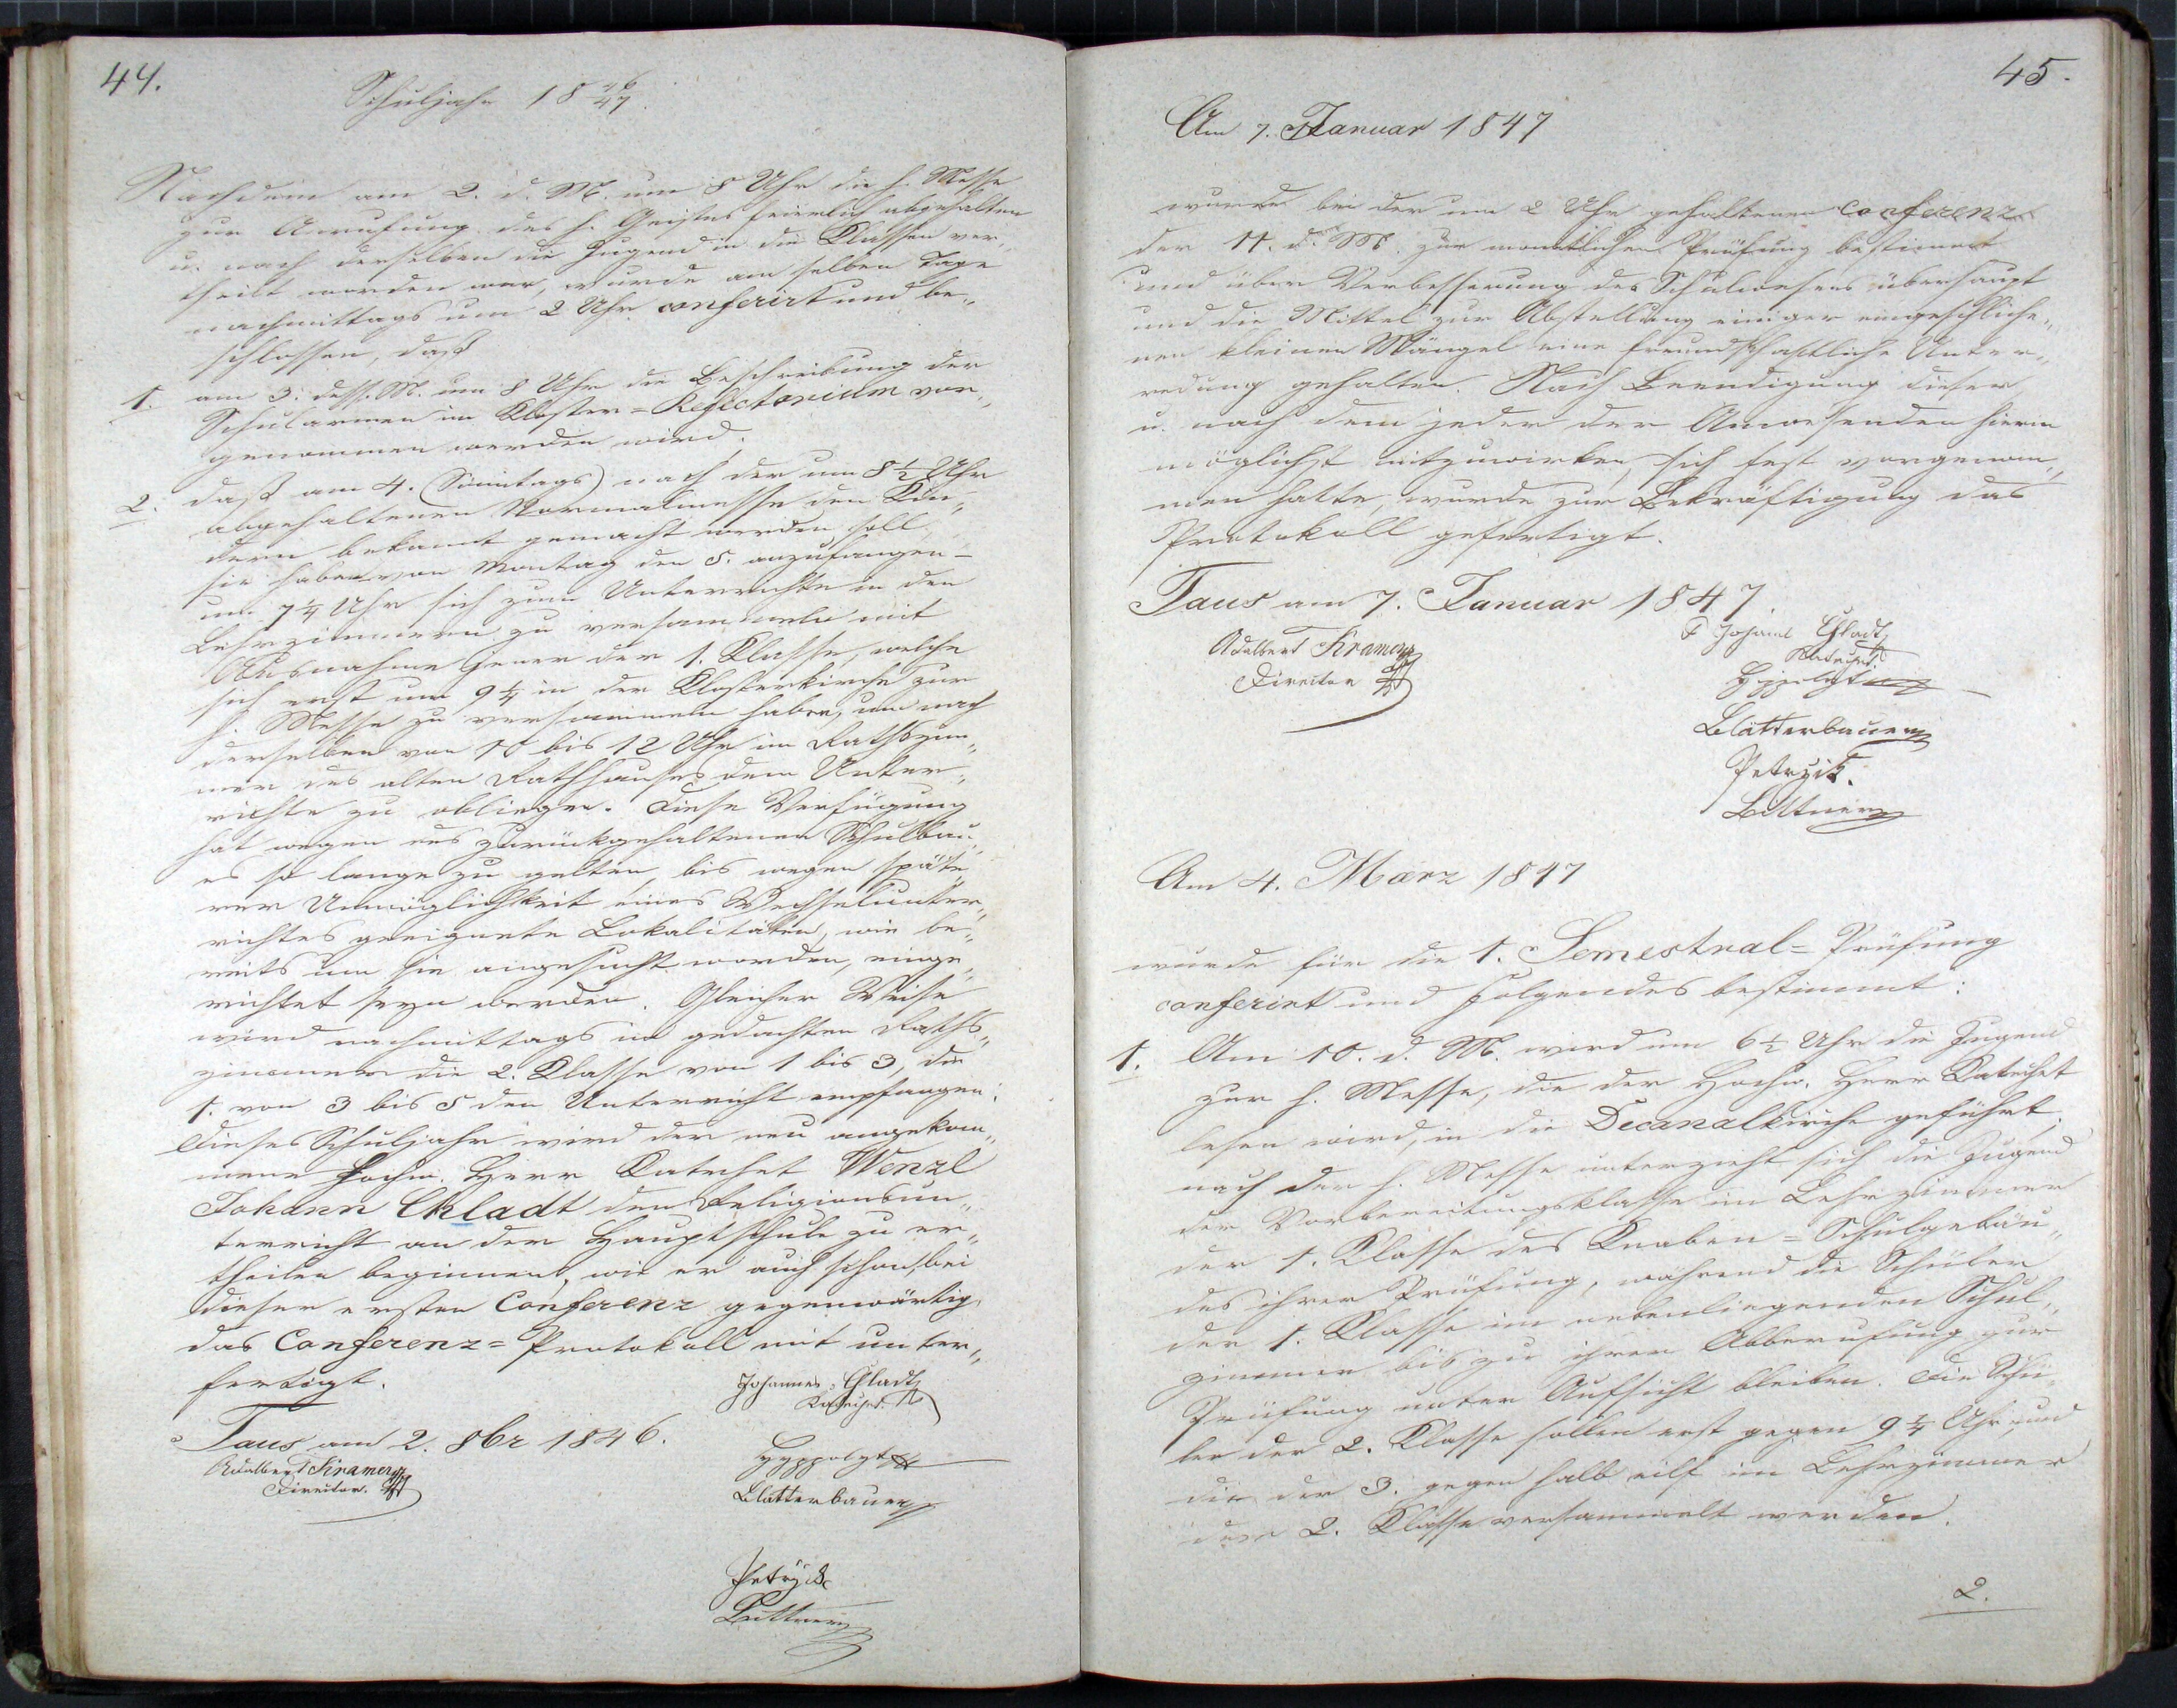 44.
Schuljahr 18 46/47.
Nachdem am 2. d. M. um 8 Uhr die h. Messe
zur Anrufung des h. Geistes feierlich abgehalten
u. nach derselben die Jugend in die Klassen ver„
theilt worden war, wurde am selben Tage
nachmittags um 2 Uhr conferirt und be„
schlossen, daß
1. am 3. dess. M. um 8 Uhr die Beschreibung der
Schularmen im Kloster=Refectorium vor„
genommen werden wird.
2. daß am 4. (Sonntags) nach der um 8½ Uhr
abgehaltenen Normalmesse den Kin„
dern bekannt gemacht werden soll,
sie haben von Montag den 5. anzufangen –
um 7¼ Uhr sich zum Unterrichte in den
Lehrzimmern zu versammeln mit
Ausnahme jener der 1. Klasse, welche
sich erst um 9¼ in der Klosterkirche zur
h. Messe zu versammeln haben, um nach
derselben von 10 bis 12 Uhr im Rathszim„
mer des alten Rathhauses dem Unter„
richte zu obliegen. Diese Verfügung
hat wegen des zurückgehaltenen Schulbau„
es so lange zu gelten, bis wegen späte„
rer Unmöglichkeit eines Wechselunter„
richtes geeignete Lokalitäten, wie be„
reits um sie angesucht worden, einge„
richtet seyn werden. Gleicher Weise
wird nachmittags im gedachten Raths„
zimmer die 2. Klasse von 1 bis 3, die
1. von 3 bis 5 den Unterricht empfangen.
Dieses Schuljahr wird der neu angekom„
mene Hochw. Herr Katechet Wenzl
Johann Chladt den Religionsun„
terricht an der Hauptschule zu er„
theilen beginnen, wie er auch schon, bei
dieser ersten Conferenz gegenwärtig,
das Conferenz=Protokoll mit unter„
fertigt.
Johannes Chladt
Katechet.
Taus am 2. 8br 1846.
Adalbert Kramer
Director.
Hyppolyt
Blätterbauer
Petržik
Büttner
45.
Am 7. Januar 1847
wurde bei der um 2 Uhr gehaltenen Conferenz
der 11. d. M. zur monatlichen Prüfung bestimmt
und über Verbesserung des Schulwesens überhaupt
und die Mittel zur Abstellung einiger eingeschliche„
nen kleinen Mängel eine freundschaftliche Unter„
redung gehalten. Nach Beendigung dieser
u. nach dem jeder der Anwesenden hierin
möglichst mitzuwirken, sich fest vorgenom„
men hatte, wurde zur Bekräftigung das
Protokoll gefertigt.
Taus am 7. Januar 1847.
Adalbert Kramer
Director
Johann Chladt
Katechet.
Hyppolyt
Blätterbauer
Petržik.
Büttner
Am 4. März 1847
wurde für die 1. Semestral=Prüfung
conferirt und Folgendes bestimmt:
1. Am 10. d. M. wird um 6½ Uhr die Jugend
zur h. Messe, die der Hochw. Herr Katechet
lesen wird, in die Decanalkirche geführt,
nach der h. Messe unterzieht sich die Jugend
der Vorbereitungsklasse im Lehrzimmer
der 1. Klasse des Knaben=Schulgebäu„
des ihrer Prüfung, während die Schüler
der 1. Klasse im nebenliegenden Schul„
zimmer bis zu ihrer Abberufung zur
Prüfung unter Aufsicht bleiben. Die Schü„
ler der 2. Klasse sollen erst gegen 9¼ Uhr, und
die der 3. gegen halb eilf im Lehrzimmer
der 2. Klasse versammelt werden.
2.